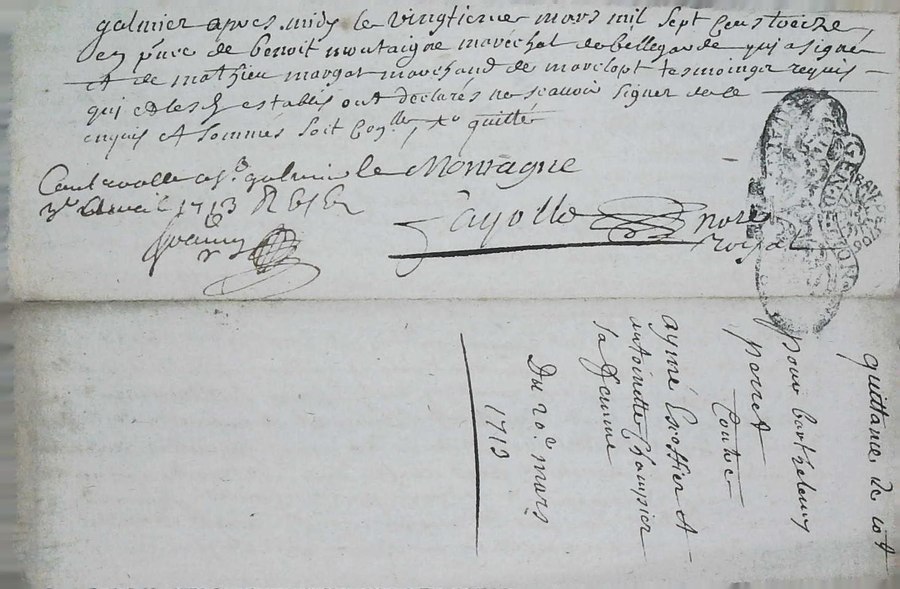 galmier apres midy le vingtieme mars mil sept cens treize
en pnce de benoit montaigne maréchal de bellegarde qui a signé
et de mathieu margat marchand de marclopt tesmoings requis
qui et les establis ont déclarés ne scauoir signer de ce
enquis et sommés soit
Controollé a St galmier le
avril 1713
Montagne
Fayolle nore
royal
GENERALITE
LION
quittance de
pour barthelemy
porret
Contre
aymé et
antoinette Champier
sa femme
Du 20e mars
1713